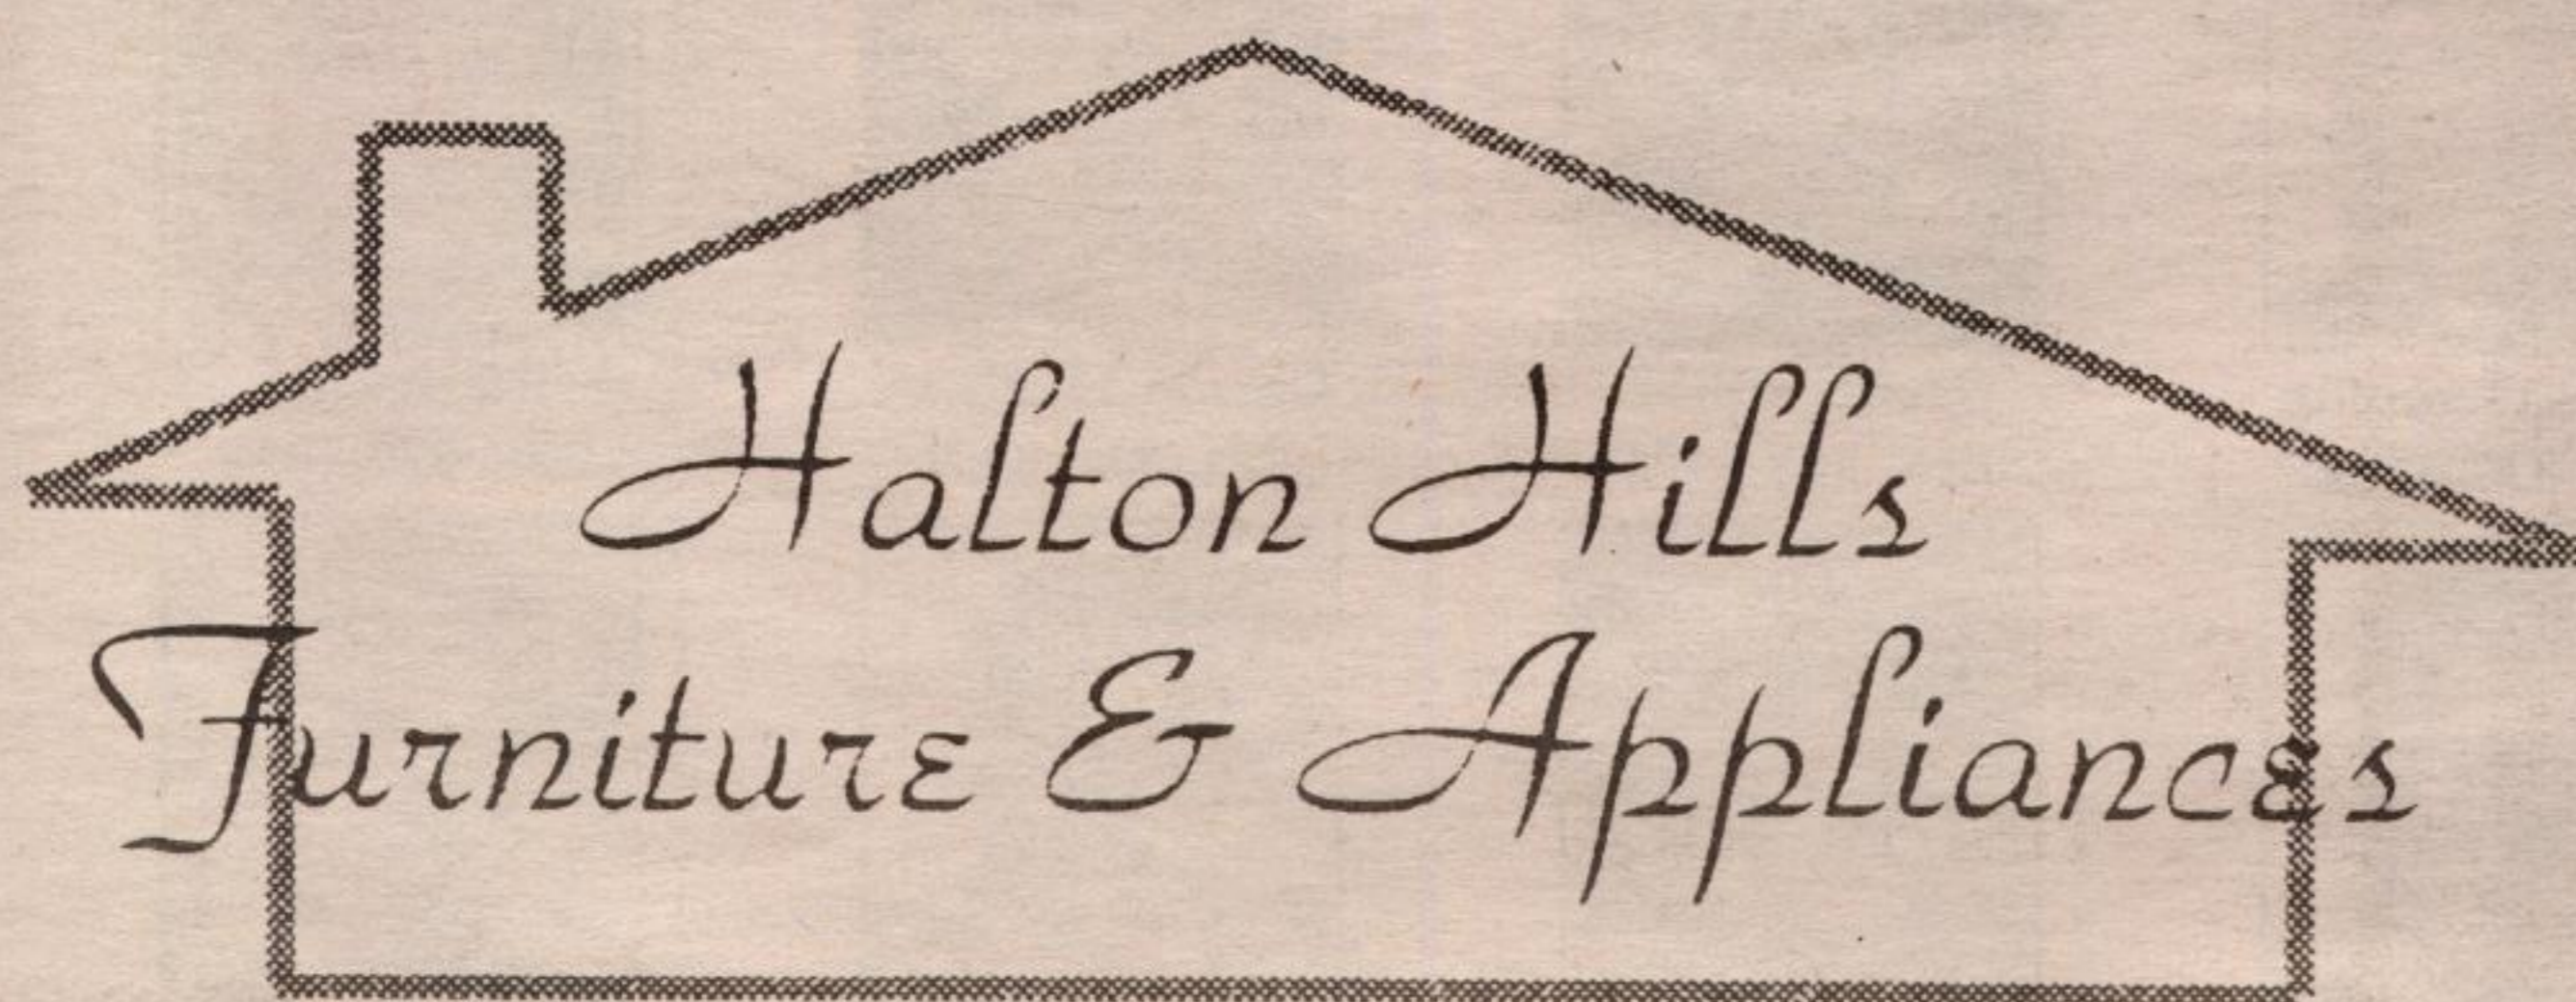 Halton Hills
Furniture & Appliances